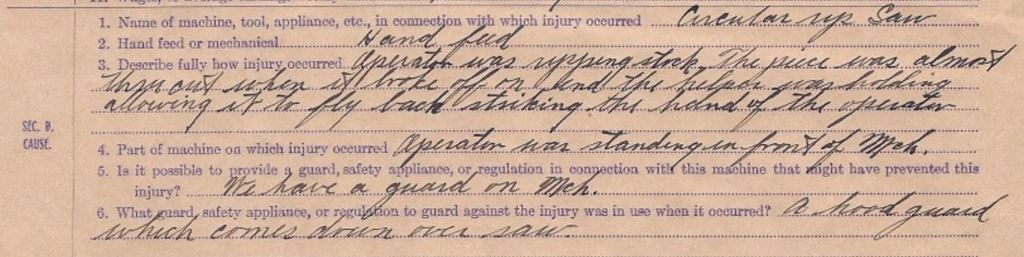 1. Name of machine, tool, appliance, etc., in connection with which injury occurred Circular rip Saw
2. Hand feed or mechanical Hand feed
3. Describe fully how injury occurred Operator was ripping stock. The piece was almost
thru cut when it broke off on end the helper was holding
allowing it to fly back striking the hand of the operator
SEC. D.
CAUSE.
4. Part of machine on which injury occurred Operator was standing in front of Mch.
5. Is it possible to provide a guard, safety appliance, or regulation in connection with this machine that might have prevented this
injury? We have a guard on Mch.
6. What guard, safety appliance, or regulation to guard against the injury was in use when it occurred? A hood guard
which comes down over saw.